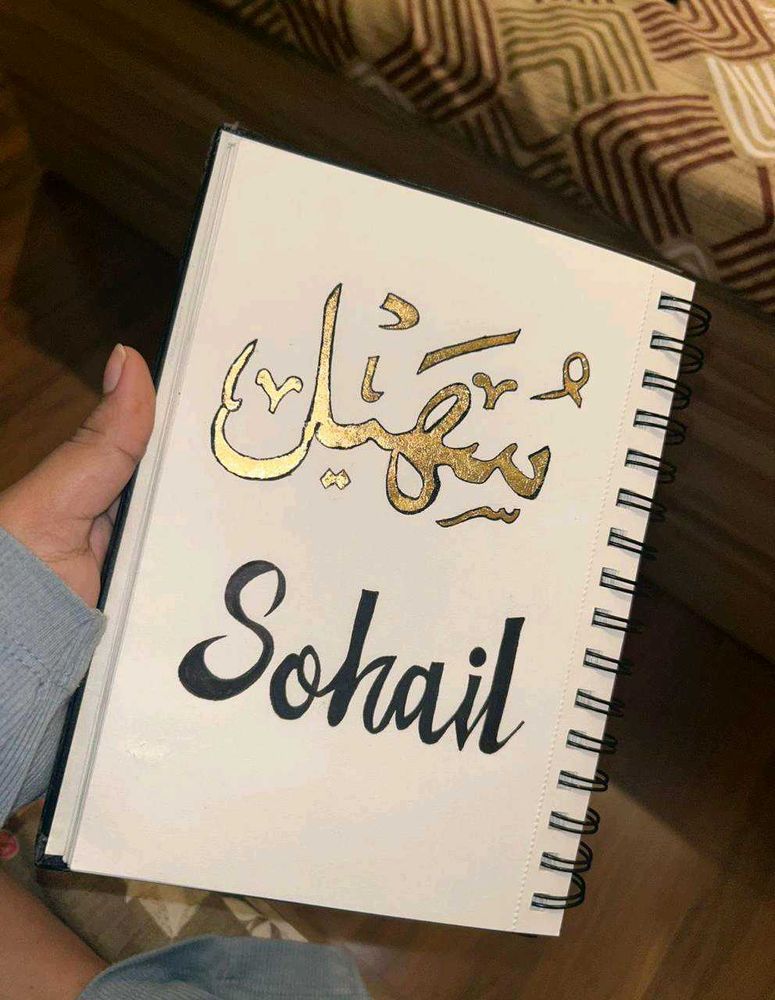 سُهَيل
Sohail